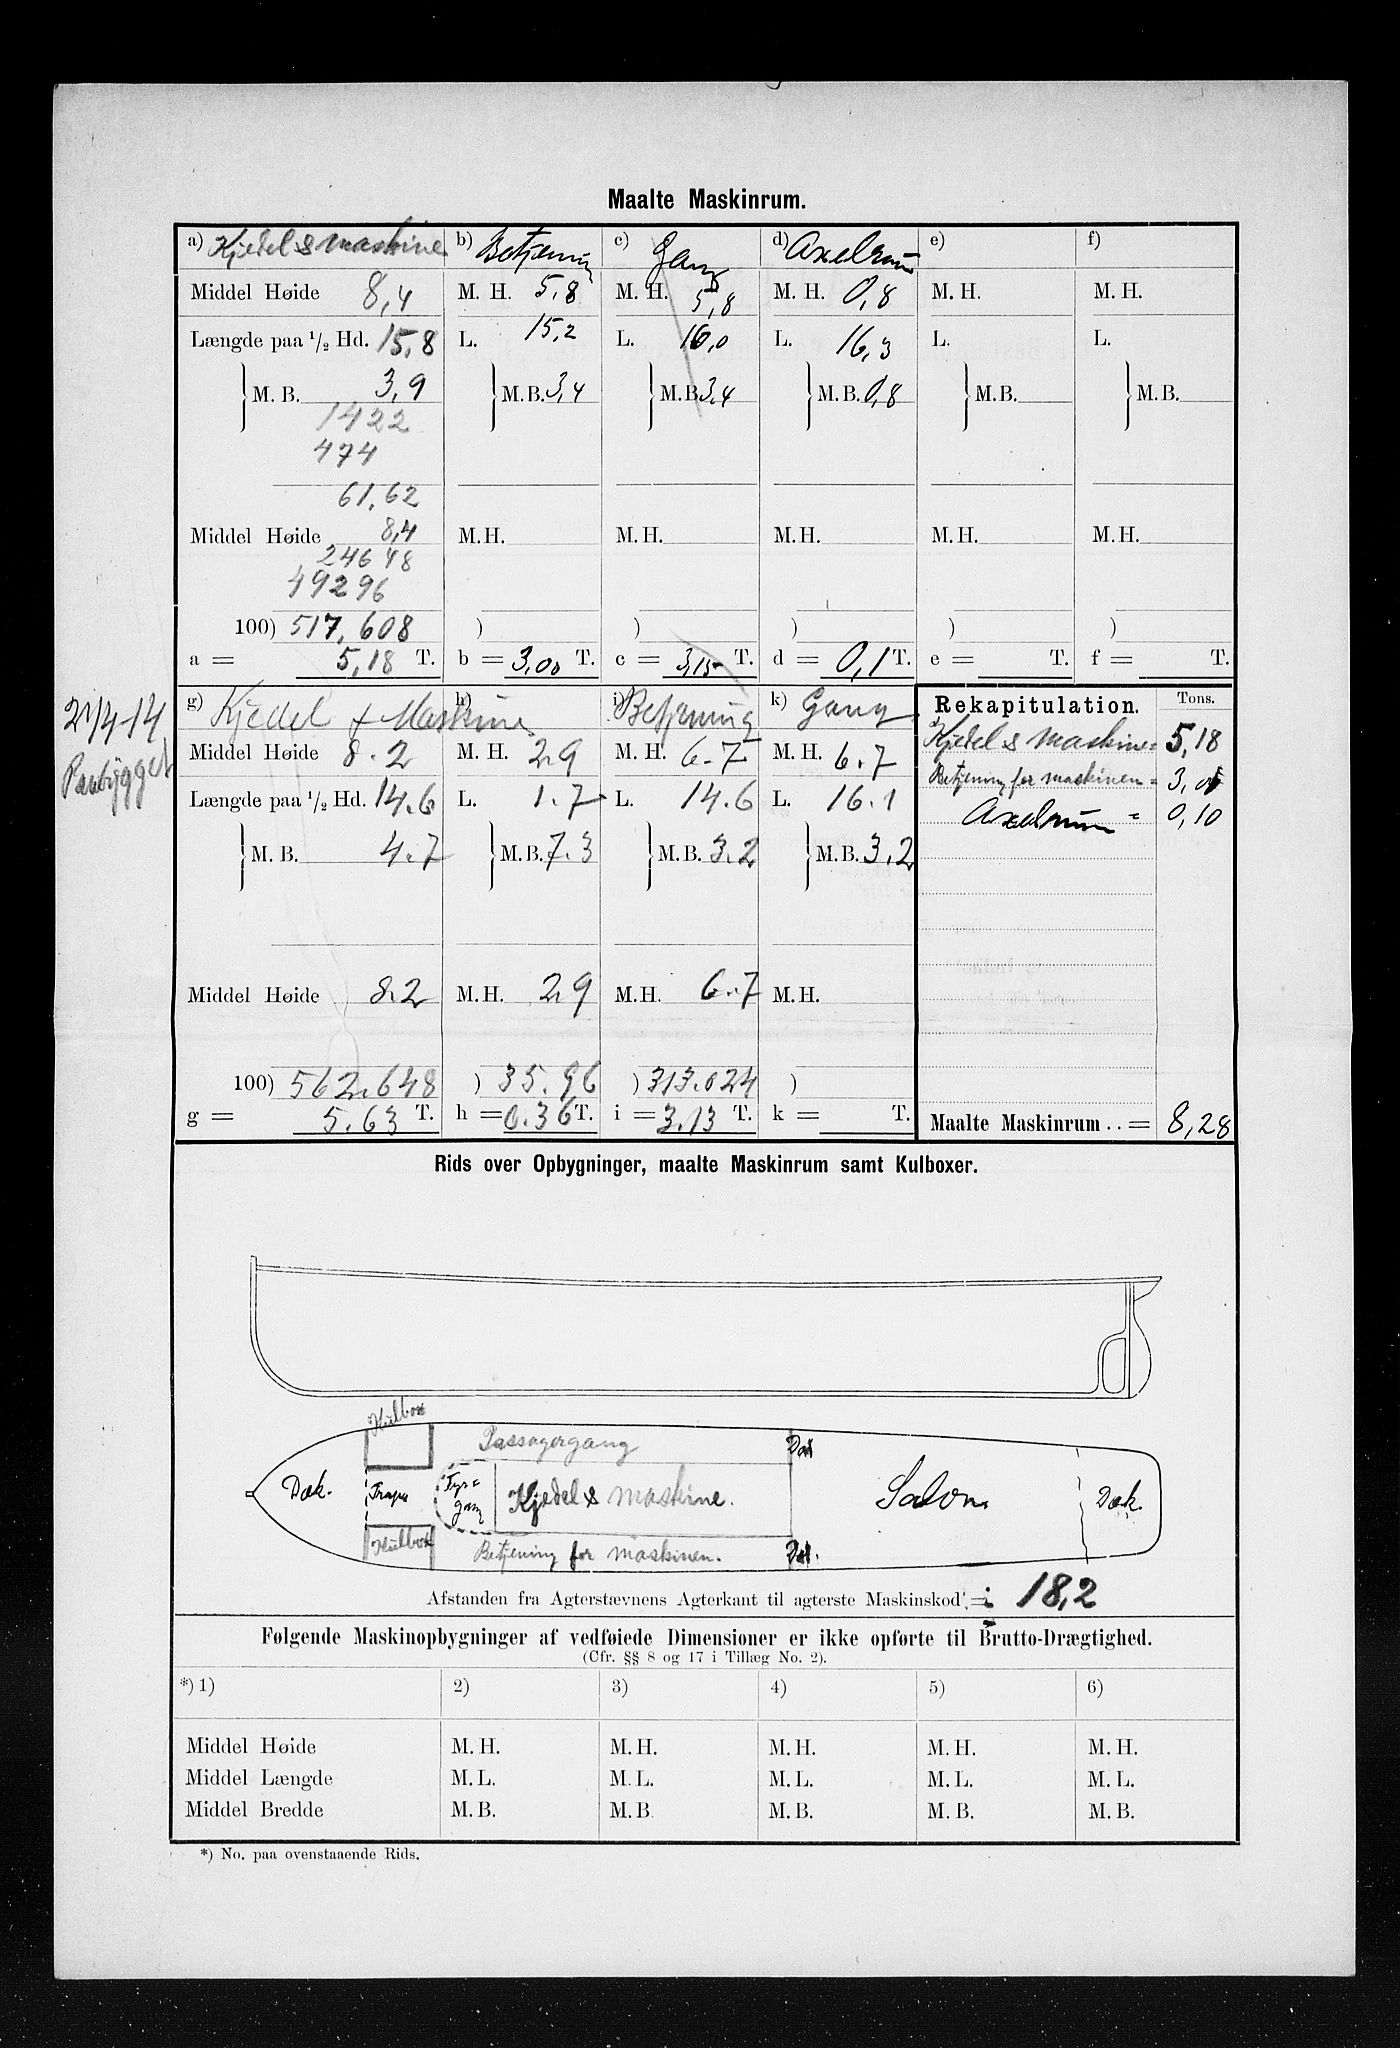 Maalte Maskinrum.
a) Kjedel & maskine b) Betjening c) Gang d) Axelrum e) f)
Middel Høide 8,4 M. H. 5,8 M. H. 5,8 M. H. 0,8 M. H. M. H.
Længde paa 1/2 Hd. 15,8 L. 15,2 L. 16,0 L. 16,3 L. L.
M. B. 3,9 M. B. 3,4 M. B. 3,4 M. B. 0,8 M. B. M. B.
1422
474
61,62
Middel Høide 8,4 M. H. M. H. M. H. M. H. M. H.
24648
49296
100) 517,608 ) ) ) ) )
a = 5,18 T. b = 3,00 T. c = 3,15 T. d = 0,1 T. e = T. f = T.
21/4-14
g) Kjedel & Maskine h) i) Betjening k) Gang
Middel Høide 8.2 M. H. 2.9 M. H. 6.7 M. H. 6.7
Længde paa 1/2 Hd. 14.6 L. 1.7 L. 14.6 L. 16.1
M. B. 4.7 M. B. 7.3 M. B. 3.2 M. B. 3.2
Middel Høide 8.2 M. H. 2.9 M. H. 6.7 M. H.
100) 562.648 ) 35.96 ) 313.024 )
g = 5.63 T. h = 0.36 T. i = 3.13 T. k = T.
Rekapitulation. Tons.
Kjedel & maskine = 5,18
Betjening for maskinen =
Axelrum = 0,10
Maalte Maskinrum .. = 8,28
Rids over Opbygninger, maalte Maskinrum samt Kulboxer.
Kulbox
Passagergang
Dæk. Trapp Fyr= gang Kjedel & maskine. Salon Dæk.
Kulbox
Betjening for maskinen.
Afstanden fra Agterstævnens Agterkant til agterste Maskinskod' = 18,2
Følgende Maskinopbygninger af vedføiede Dimensioner er ikke opførte til Brutto-Drægtighed.
(Cfr. §§ 8 og 17 i Tillæg No. 2).
*) 1) 2) 3) 4) 5) 6)
Middel Høide M. H. M. H. M. H. M. H. M. H.
Middel Længde M. L. M. L. M. L. M. L. M. L.
Middel Bredde M. B. M. B M. B. M. B. M. B.
*) No. paa ovenstaaende Rids.